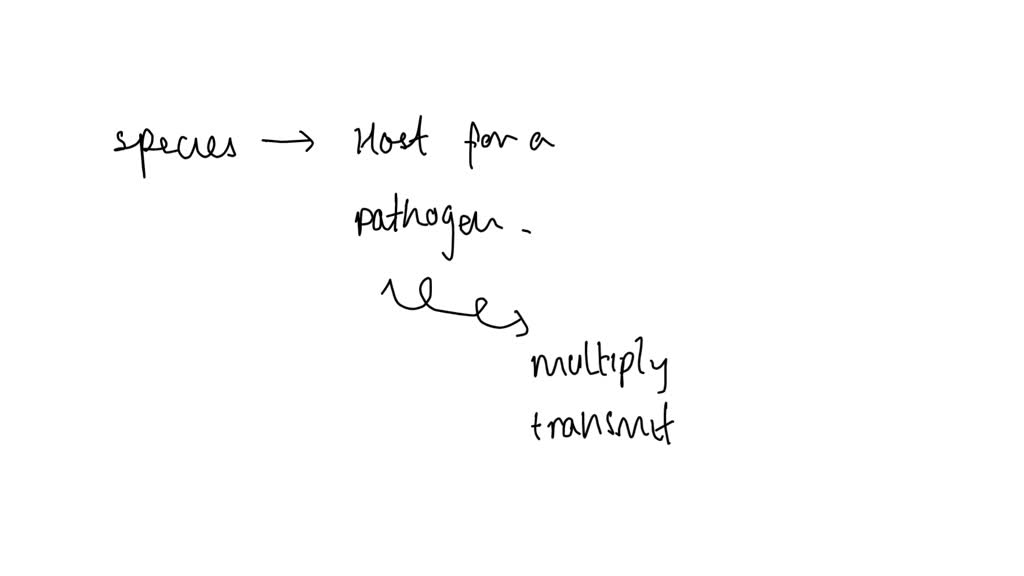 species → Host for a
pathogen.
multiply
transmit